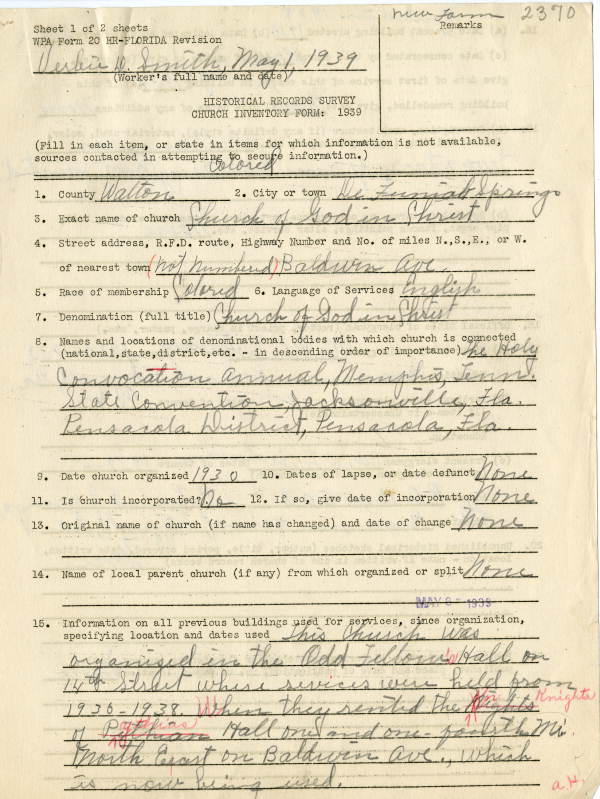 Sheet 1 of 2 sheets
WPA Form 20 HR-FLORIDA Revision
New Form 2370
Remarks
Verbie D. Smith, May 1, 1939
(Worker's full name and date)
HISTORICAL RECORDS SURVEY
CHURCH INVENTORY FORM: 1939
(Fill in each item, or state in items for which information is not available,
sources contacted in attempting to secure information.)
Colored
1. County Walton 2. City or town De Funiak Springs
3. Exact name of church Church of God in Christ
4. Street address, R.F.D. route, Highway Number and No. of miles N.,S.,E., or W.
of nearest town (Not Numbered) Baldwin Ave.
5. Race of membership Colored 6. Language of Services English
7. Denomination (full title) Church of God in Christ
8. Names and locations of denominational bodies with which church is connected
(national,state,district,etc. - in descending order of importance) The Holy
Convocation annual, Memphis, Tenn.
State Convention, Jacksonville, Fla.
Pensacola District, Pensacola, Fla.
9. Date church organized 1930 10. Dates of lapse, or date defunct None
11. Is church incorporated? No 12. If so, give date of incorporation None
13. Original name of church (if name has changed) and date of change None
14. Name of local parent church (if any) from which organized or split None
MAY 8 - 1939
15. Information on all previous buildings used for services, since organization,
specifying location and dates used This Church was
organised in the Odd Fellow's Hall on
14th Street where sevices were held from
1930-1938. When they rented the Nights Knights
of Pythian Pythias Hall one and one-fourth Mi.
North East on Baldwin Ave., which
is now being used.
a.H.